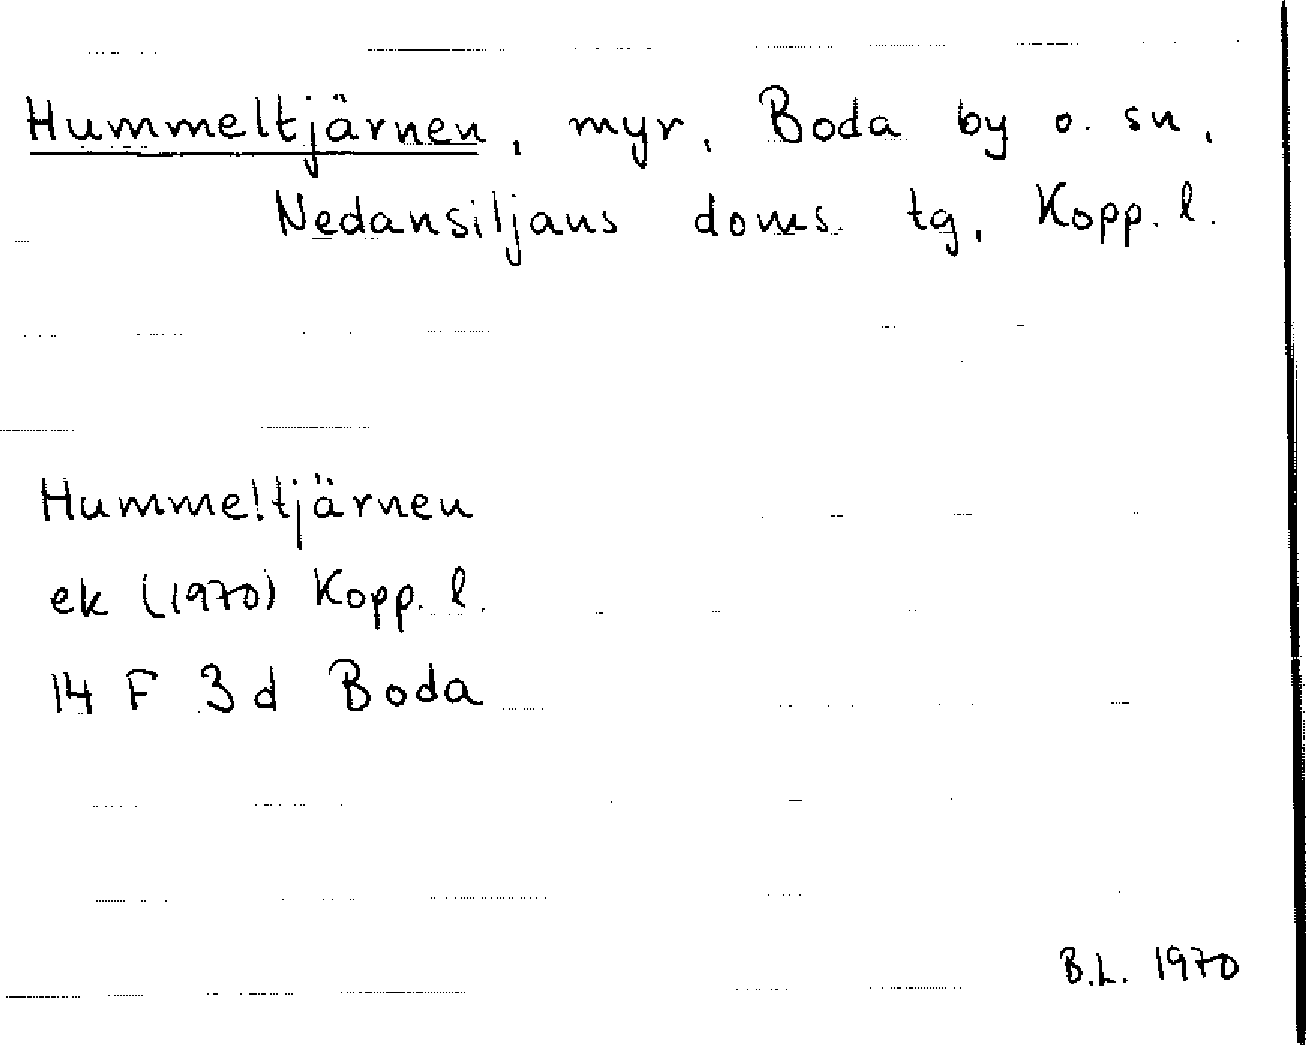 Hummeltjärnen, myr, Boda by o. sn,
Nedansiljans doms. tg, Kopp. l.
Hummeltjärnen
ek (1970) Kopp. l.
14 F 3d Boda
B.L. 1970